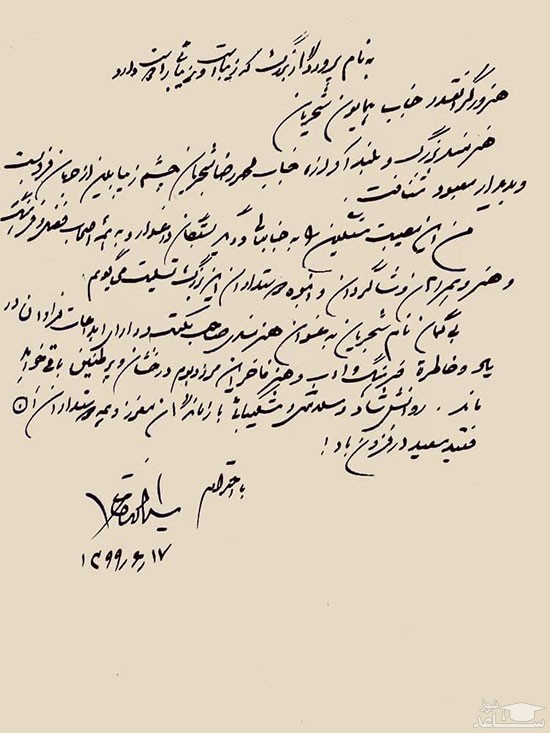 به نام پروردگار بزرگ که زیباست و زیبائی را دوست دارد
هنرور گرانقدر جناب همایون شجریان
هنرمند بزرگ و بلند آوازه جناب محمدرضا شجریان چشم زیبابین از جهان فروبست
و به دیدار معبود شتافت.
من این مصیبت سنگین را به جنابعالی و دیگر بستگان داغدار و به همه اصحاب فضل و فرهنگ
و هنر و همراهان و شاگردان و انبوه دوستداران این بزرگ تسلیت می‌گویم.
بی گمان نام شجریان به عنوان هنرمندی صاحب سبک و دارای ابداعات فراوان در
یاد و خاطرهٔ فرهنگ و ادب و هنر فاخر این مرز و بوم درخشان و پرطنین باقی خواهد
ماند. روانش شاد و سلامتی و شکیبائی بازماندگان معزز و همه دوستداران آن
فقید سعید در فزون باد!
با احترام
۱۳۹۹٫۶٫۱۷
نیوز
ساعد